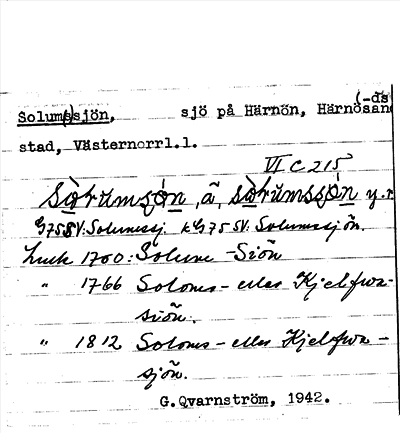 (-ds
Solum(s)sjön, sjö på Härnön, Härnösand
stad, Västernorrl.l.
VI C 215
G75SV: Solumssj. kG75SV: Solumssjön.
Luck 1700: Solum -Siön
" 1766 Soloms- eller Kjelfwa-
siön.
" 1812 Soloms- eller Kjelfwa-
sjön.
G.Qvarnström, 1942.